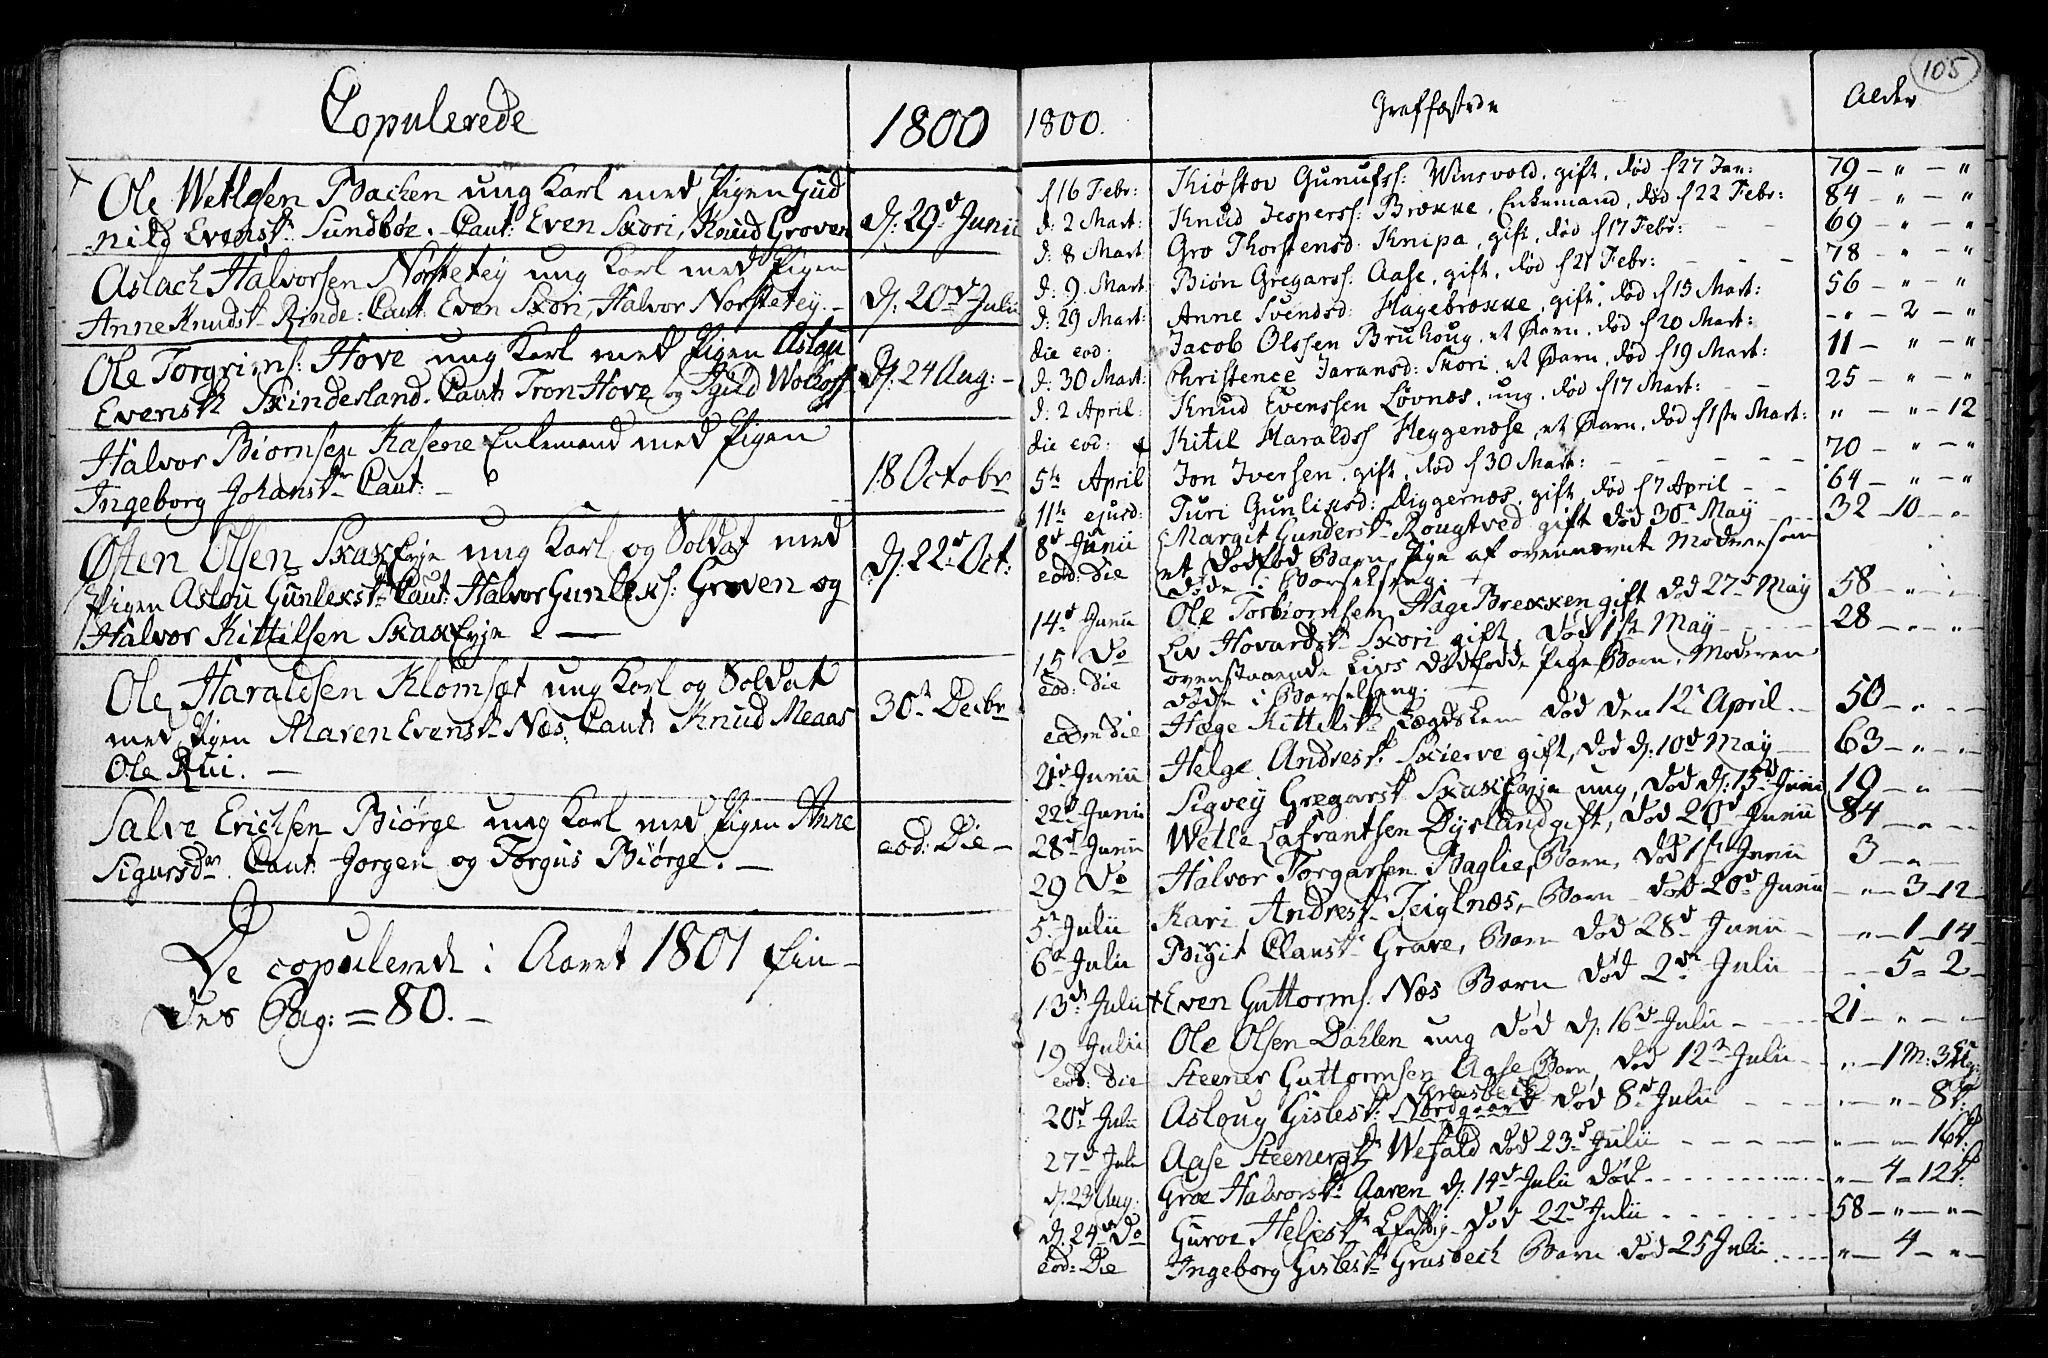 Copulerede
1800
Ole Wetlesen Backen ung Karl med Pigen Gud
nild Evensdr Sundbøe. Caut: Even Skori, Knud Groven
d: 29d Junii
Aslach Halvorsen Nørstetey ung Karl med Pigen
Anne Knudsdr Rinde: Caut: Even Skori, Halvor Norstetey. -
d: 20d Julii
Ole Torgrims: Hove ung Karl med Pigen Aslou
Evensdr Skindesland. Caut: Tron Hove og
d: 24 Aug: -
Halvor Biørnsen Kasene Enkemand med Pigen
Ingeborg Johansdr Caut: -
18 Octobr
Østen Olsen Skaxeyje ung Karl og Soldat med
Pigen Aslou Gunleksdr Caut: Halvor Gunleks: Groven og
Halvor Kittilsen Skaxeyje -
d: 22d Oct:
Ole Haraldsen Klomset ung Karl og Soldat
med Pigen Maren Evensdr Næs: Caut: Knud Meaas
Ole Rui. -
30te Decbr
Salve Erichsen Biørge ung Karl med Pigen Anne
Sigursdr. Caut: Jorgen og Torgus Biørge. -
eod: Die -
De copulerede i Aaret 1801 fin-
des Pag: = 80. -
105
1800.
Graffæstede
Alder
d 16 Febr: Kiøstov Gunufss: Winsvold, gift, død d 27 Jan: 79 - " - "
d: 2 Mart: Knud Jespers: Brække, Enkemand, død d 22 Febr: 84 - " - "
d: 8 Mart Gro Thorstensd: Knipa, gift, død d 17 Febr: - - 69 - " - "
d: 9 Mart: Biøn Gregars: Aase, gift, død d 21 Febr: - - - 78 - " - "
d: 29 Mart: Anne Svendsd: Hagebrække, gift, død d 15 Mart: 56 - " - "
die eod: Jacob Olssen Bruhoug, et Barn, død d 20 Mart: - " - 2 - "
d: 30 Mart: Christence Jaransd: Skori, et Barn, død d 19 Mart: 11 - " - "
d: 2 April: Knud Evenssen Løvnæs, ung, død d 17 Mart: - - 25 - " - "
die eod: Kitil Haralds: Heggenæse, et Barn, død d 1ste Mart: " - " - 12
5te April Jon Iversen, gift, død d 30 Mart: - - - - 70 - " - "
11te ejusd: Turi Gunliksd: Diggernæs, gift, død d 7 April - - 64 - " - "
8d Junii Margit Gundersdr Rougtved gift død 30te May 32 - 10 - " -
eod: die et dødfød Barn, Pige af ovennævnte Moder som
døde i Barselseng.
14d Junii Ole Torbiornsen HageBrekken gift død 27d May 58 - " - " -
15 Do Liv Hovardsdr Skori gift, død 1ste May - - - 28 - " - "
eod: Die ovenstaaende Livs dødfødde Pige Barn, Moderen
døde i Barselseng.
eodem die Hæge Kittilsdr Lægdslem død den 12te April - 50 - " - -
21d Junii Helge Andresdr Skierve gift, død d: 10d May - 63 - " - " -
22d Junii Sigvey Gregarsdr Skaxeyje ung, død d: 15d Junii 19 - " - -
28d Junii Wetle Lafrantsen Dysland gift, død 20d Junii 84 - " - -
29 Do Halvor Torgarsen Baglie, Barn, død 1ste Junii 3 - " -
5te Julii Kari Andresdr Teiglnæs, Barn - død 20d Junii - " - 3 - 12 -
6te Julii Birgit Clausdr Grave, Barn død 28d Junii - - " - 1 - 14 -
13de Julii Even Guttorms: Næs Barn død 2den Julii - - - 5 = 2 -
19 Julii Ole Olsen Dahlen ung død d: 16d Julii - - - 21 - " - -
eod: Die Steener Guttormsen Aase Barn, død 12te Julii - - " - 1 M: 3 Ug:
Grasbech
20d Julii Asloug Gislesdr: Nordgaard død 8d Julii - - - " - " - 8 d:
27d Juli Aase Steenersdr Wefald død 23d Julii - - - - " - - 16 d:
d: 23 Aug: Groe Halvorsdr Aaren d: 14d Julii død - - - - " - 4 = 12 d:
d: 24d Do Guroe Heljesdr død 22d Julii - - - - 58 - " - " -
eod: Die Ingeborg Gislesdr Grasbech Barn død 25 Julii - - " - 4 - " -